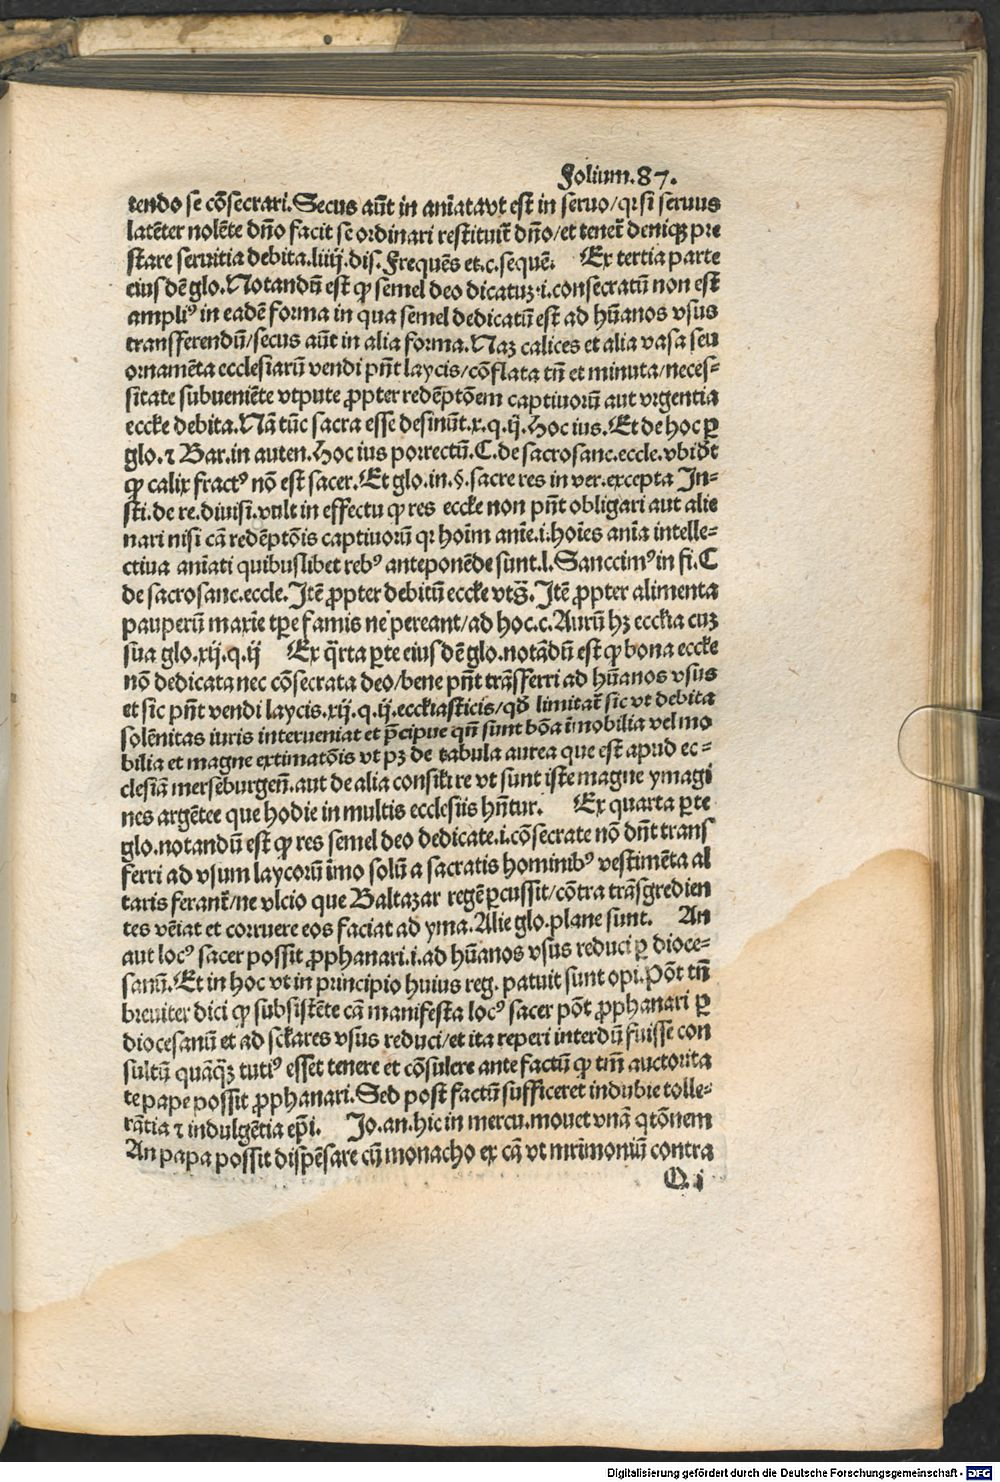 Folium.87.
tendo se cõsecrari. Secus aũt in aniata vt est in seruo/qꝛ si seruus
latẽter nolẽte dño facit se ordinari restituit̃ dño/et tenet̃ deniqꝫ pre
stare seruitia debita.liiij.dis. Frequẽs et.c.sequẽ. Ex tertia parte
eius dẽ glo. Notandũ est ꝙ semel deo dicatuꝫ.i.consecratũ non est
ampliꝰ in eadẽ forma in qua semel dedicatũ est ad hũanos vsus
transferendũ/secus aũt in alia forma. Naꝫ calices et alia vasa seu
ornamẽta ecclesiarũ vendi pñt laycis/cõflata tñ et minuta/neces⸗
sitate subueniẽte vtpute ꝓpter redẽptõem captiuorũ aut vrgentia
eccl̃e debita. Nã tũc sacra esse desinũt.x.q.ij. Hoc ius. Et de hoc ꝑ
glo. ⁊ Bar. in auten. Hoc ius porrectũ. C. de sacrosanc.eccle. vbi dt̃
ꝙ calix fractꝰ nõ est sacer. Et glo.in.§. sacre res in ver.excepta In⸗
sti.de re.diuisi.vult in effectu ꝙ res eccl̃e non pñt obligari aut alie
nari nisi cã redẽptõis captiuorũ qꝛ hoim̃ anie̅.i.hoie̅s ania̅ intelle⸗
ctiua aniati quibuslibet rebꝰ anteponẽde sunt.l. Sanccimꝰ in fi. C
de sacrosanc.eccle. Itẽ ꝓpter debitũ eccl̃e vt s̃. Itẽ ꝓpter alimenta
pauperũ maxie̅ tp̃e famis ne pereant/ad hoc.c. Aurũ hꝫ eccl̃ia cuꝫ
sua glo.xij.q.ij Ex q̃rta ꝑte eius dẽ glo.notãdũ est ꝙ bona eccl̃e
nõ dedicata nec cõsecrata deo/bene pñt trãsferri ad hũanos vsus
et sic pñt vendi laycis.xij.q.ij.eccl̃iasticis/qd̃ limitat̃ sic vt debita
solẽnitas iuris interueniat et p̃cipue qñ sunt bõa ĩmobilia vel mo
bilia et magne extimatõis vt pꝫ de tabula aurea que est apud ec⸗
clesiã merseburgeñ.aut de alia consil̃i re vt sunt iste magne ymagi
nes argẽtee que hodie in multis ecclesiis hñtur. Ex quarta ꝑte
glo.notandũ est ꝙ res semel deo dedicate.i.cõsecrate nõ dñt trans
ferri ad vsum laycorũ ĩmo solũ a sacratis hominibꝰ vestimẽta al
taris ferant̃/ne vlcio que Baltazar regẽ ꝑcussit/cõtra trãsgredien
tes vẽiat et corruere eos faciat ad yma. Alie glo.plane sunt. An
aut locꝰ sacer possit ꝓphanari.i.ad hũanos vsus reduci ꝑ dioce⸗
sanũ. Et in hoc vt in principio huius reg. patuit sunt opi. Põt tñ
breuiter dici ꝙ subsistẽte cã manifesta locꝰ sacer põt ꝓphanari ꝑ
diocesanũ et ad scl̃ares vsus reduci/et ita reperi interdũ fuisse con
sultũ quãq̃ꝫ tutiꝰ esset tenere et cõsulere ante factũ ꝙ tm̃ auctorita
te pape possit ꝓphanari. Sed post factũ sufficeret indubie tolle⸗
rãtia ⁊ indulgẽtia ep̃i. Jo.an.hic in mercu.mouet vnã q̃tõnem
An papa possit dispẽsare cũ monacho ex cã vt mr̃imoniũ contra
O.i
Digitalisierung gefördert durch die Deutsche Forschungsgemeinschaft - DFG